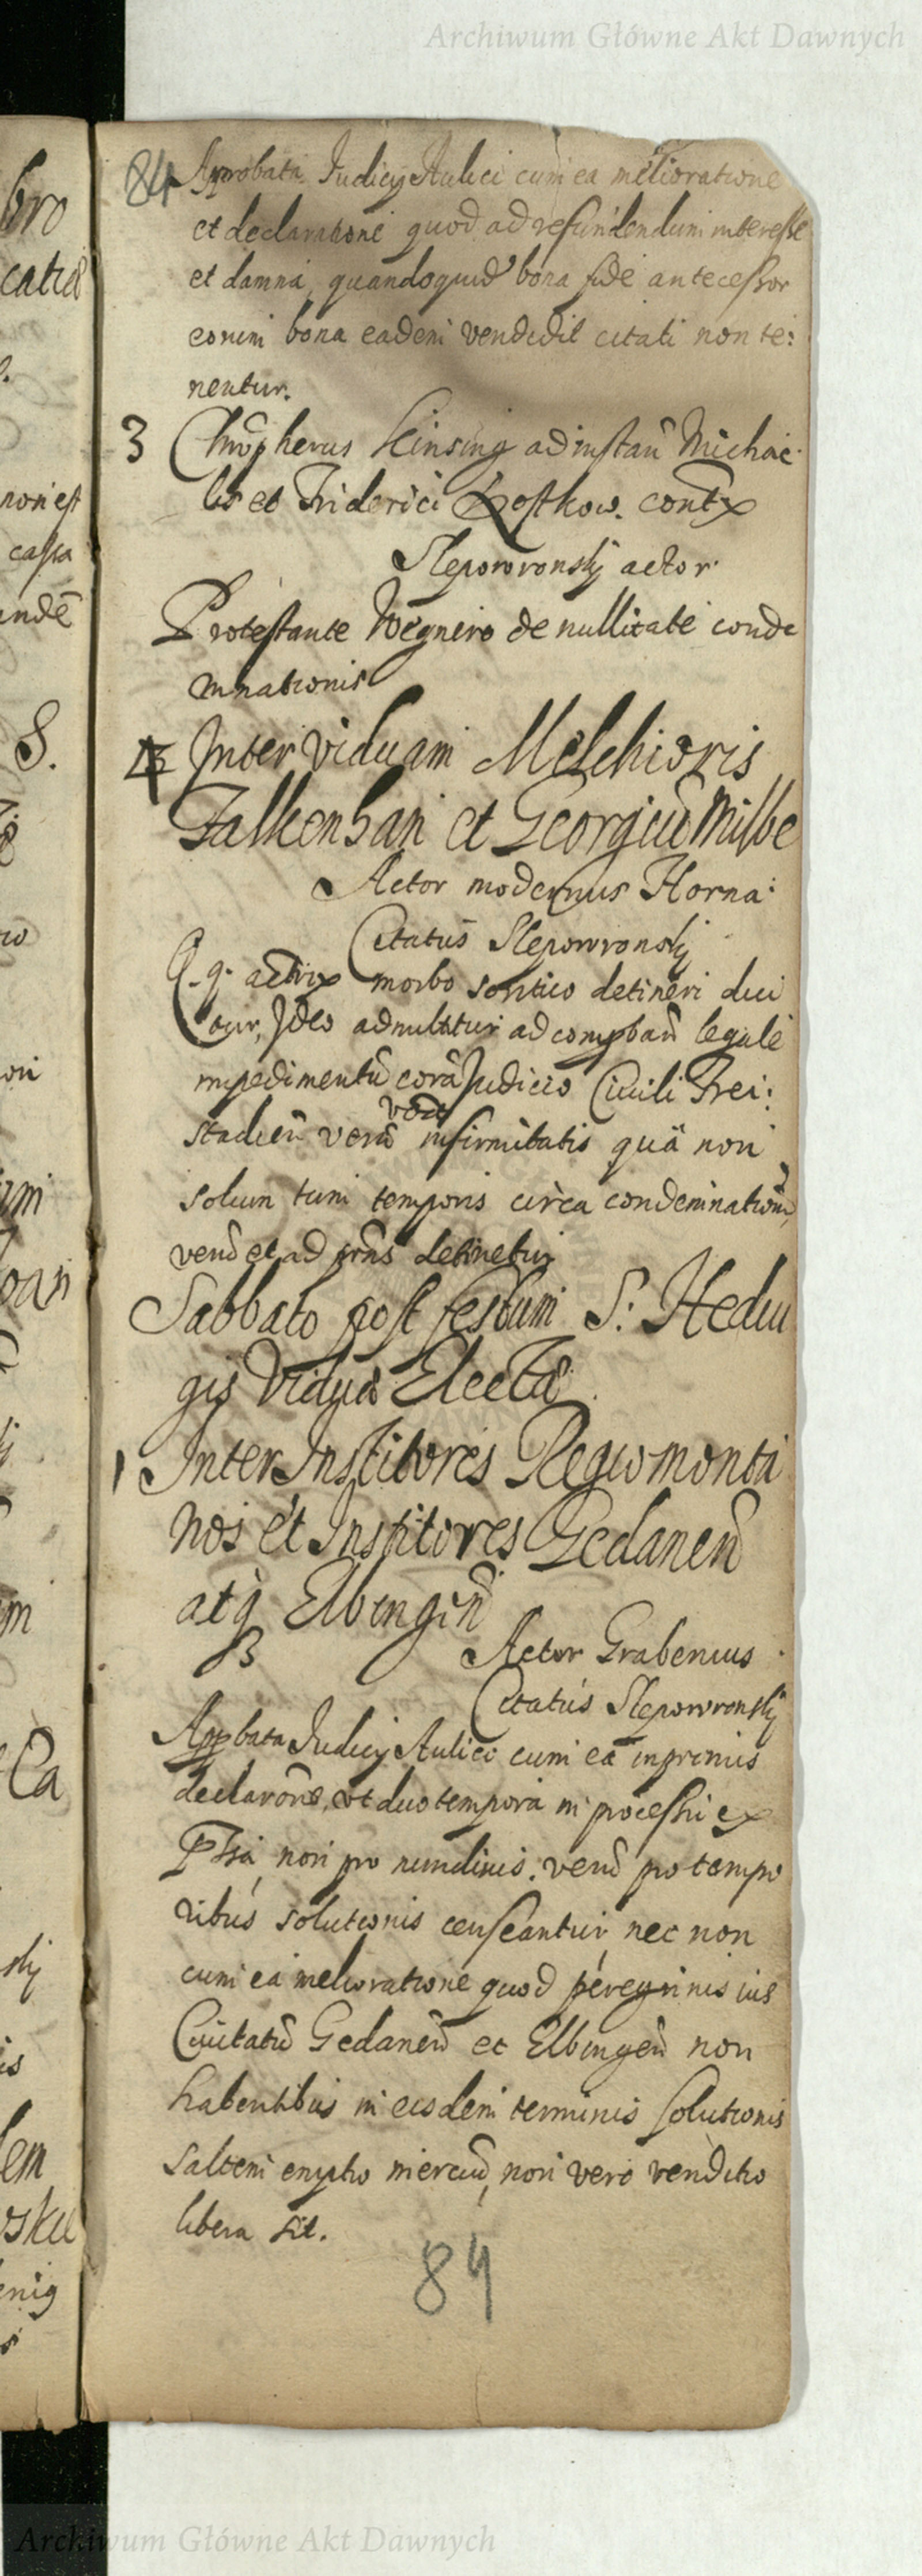 Archiwum Główne Akt Dawnych
84 Approbata Judicij Aulici cum ea melioratione
et declaratione quod ad refundendum interesse
et damna, quandoquid bona fide antecessor
eorum bona eadem vendidit citati non te:
nentur.
3 Chrõpherus Kinsing ad instañ Michae
lis et Friderici Kostkow. contx
Slepowronsky actor
Protestante Wegnero de nullitate conde
mnationis
4 Inter viduam Melchioris
Falkenhan et Georgiũ Milbe
Actor modernus Horna:
Citatus Slepowronskj
Q. q. actrix morbo sontico detineri dici
tur, Ideo admittitur ad compbañ legale
impedimentũ corã Judicio Civili Frei:
stadieñ verã infirmitatis quã non
solum tum temporis circa condemnationẽ,
verũ et ad prñs detinetur
Sabbato post festum S: Hedui
gis Viduæ Electæ
1 Inter Institores Regiomonta
nos et Institores Gedaneñ
atq Elbingeñ
Actor Grabenius
Citatus Slepowronskj
Appbata Judicij Aulici cum ea inprimis
declarõne, ut duo tempora in processu ex
Pssa, non pro nundinis, verũ pro tempo
ribus solutionis censeantur, nec non
cum ea melioratione quod peregrinis ius
Civitatũ Gedaneñ et Elbingeñ non
habentibus in eisdem terminis solutionis
saltem emptio merciũ, non vero venditio
libera sit.
84
Archiwum Główne Akt Dawnych